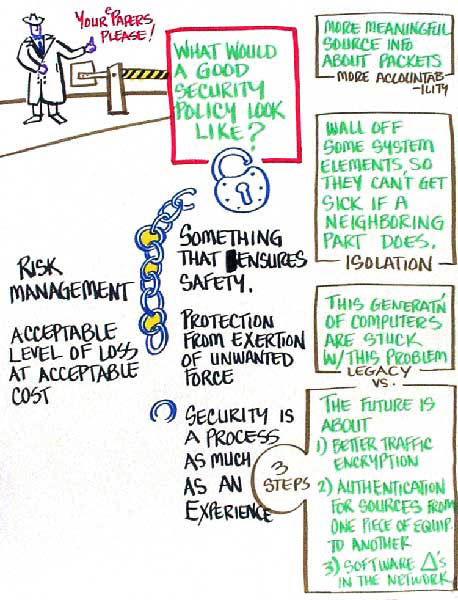 YOUR PAPERS,
PLEASE!
WHAT WOULD
A GOOD
SECURITY
POLICY LOOK
LIKE?
SOMETHING
THAT ENSURES
SAFETY.
PROTECTION
FROM EXERTION
OF UNWANTED
FORCE
SECURITY IS
A PROCESS
AS MUCH
AS AN
EXPERIENCE
RISK
MANAGEMENT
ACCEPTABLE
LEVEL OF LOSS
AT ACCEPTABLE
COST
MORE MEANINGFUL
SOURCE INFO
ABOUT PACKETS
MORE ACCOUNTAB
-ILITY
WALL OFF
SOME SYSTEM
ELEMENTS, SO
THEY CAN'T GET
SICK IF A
NEIGHBORING
PART DOES.
ISOLATION
THIS GENERAT'N
OF COMPUTERS
ARE STUCK
W/THIS PROBLEM
LEGACY
VS.
3
STEPS
THE FUTURE IS
ABOUT
1) BETTER TRAFFIC
ENCRYPTION
2) AUTHENTICATION
FOR SOURCES FROM
ONE PIECE OF EQUIP.
TO ANOTHER
3) SOFTWARE Δ's
IN THE NETWORK